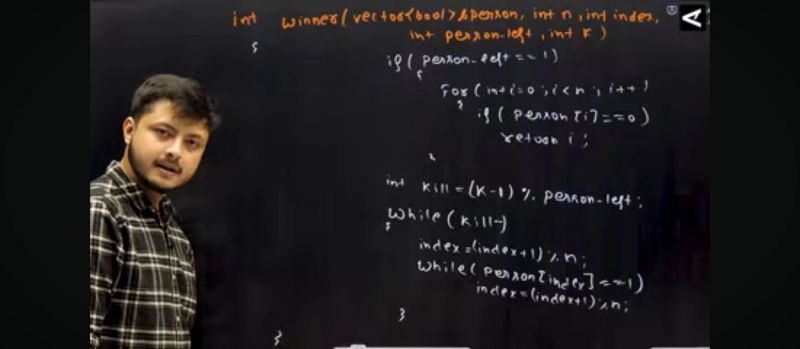 int winner(vector<bool>&person, int n, int index,
int person-left, int K)
{
if( person-left == 1)
{
for( int i=0 ; i<n ; i++)
{
if( person[i]==0)
return i ;
}
int kill = (K-1) % person-left ;
while( kill--)
{
index=(index+1) % n ;
while( person[index]==1)
index=(index+1) % n ;
}
}